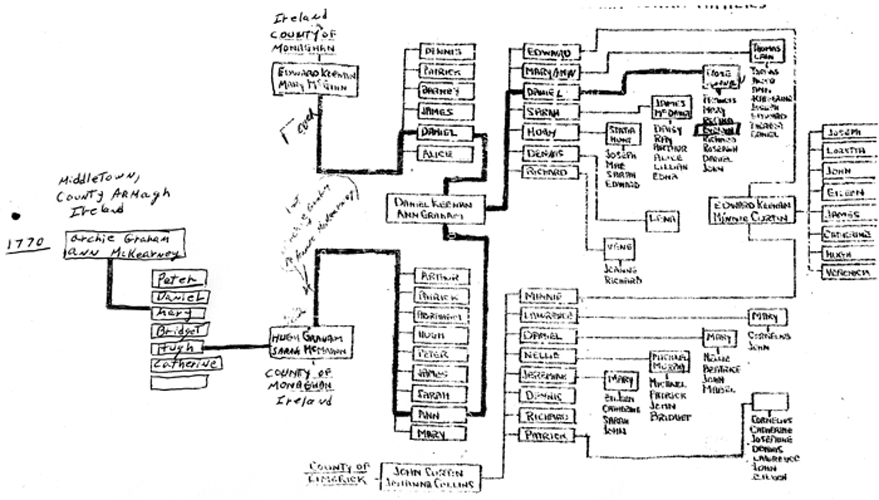 Ireland
COUNTY OF
MONAGHAN
EDWARD KEENAN
MARY McGINN
DENNIS
PATRICK
BARNEY
JAMES
DANIEL
ALICE
MIDDLETOWN,
COUNTY ARMAGH
Ireland
1770
Archie Graham
Ann McKearney
Peter
Daniel
Mary
Bridget
Hugh
Catherine
HUGH GRAHAM
SARAH McMAHON
COUNTY OF
MONAGHAN
Ireland
DANIEL KEENAN
ANN GRAHAM
ARTHUR
PATRICK
ABRAHAM
HUGH
PETER
JAMES
SARAH
ANN
MARY
EDWARD
MARY ANN
DANIEL
SARAH
HUGH
DENNIS
RICHARD
JOSEPH
MAE
SARAH
EDWARD
JAMES
DAISY
RAY
ARTHUR
ALICE
LILLIAN
EDNA
FRANCIS
MARY
RICHARD
DANIEL
JOHN
THOMAS
ANN
JOSEPH
EDWARD
THERESA
DANIEL
LENA
VENE
JEANNE
RICHARD
EDWARD KEENAN
MINNIE CURTIN
JOSEPH
LORETTA
JOHN
EILEEN
JAMES
CATHERINE
HUGH
VERONICA
MINNIE
LAWRENCE
DANIEL
NELLIE
JEREMIAH
DENNIS
RICHARD
PATRICK
MARY
CORNELIUS
JOHN
MARY
BEATRICE
JOHN
MABEL
MICHAEL
MURPHY
MICHAEL
PATRICK
JOHN
BRIDGET
MARY
EILEEN
CATHERINE
SARAH
JOHN
CORNELIUS
CATHERINE
JOSEPHINE
DENNIS
LAWRENCE
JOHN
EILEEN
COUNTY OF
LIMERICK
JOHN CURTIN
JOHANNA COLLINS